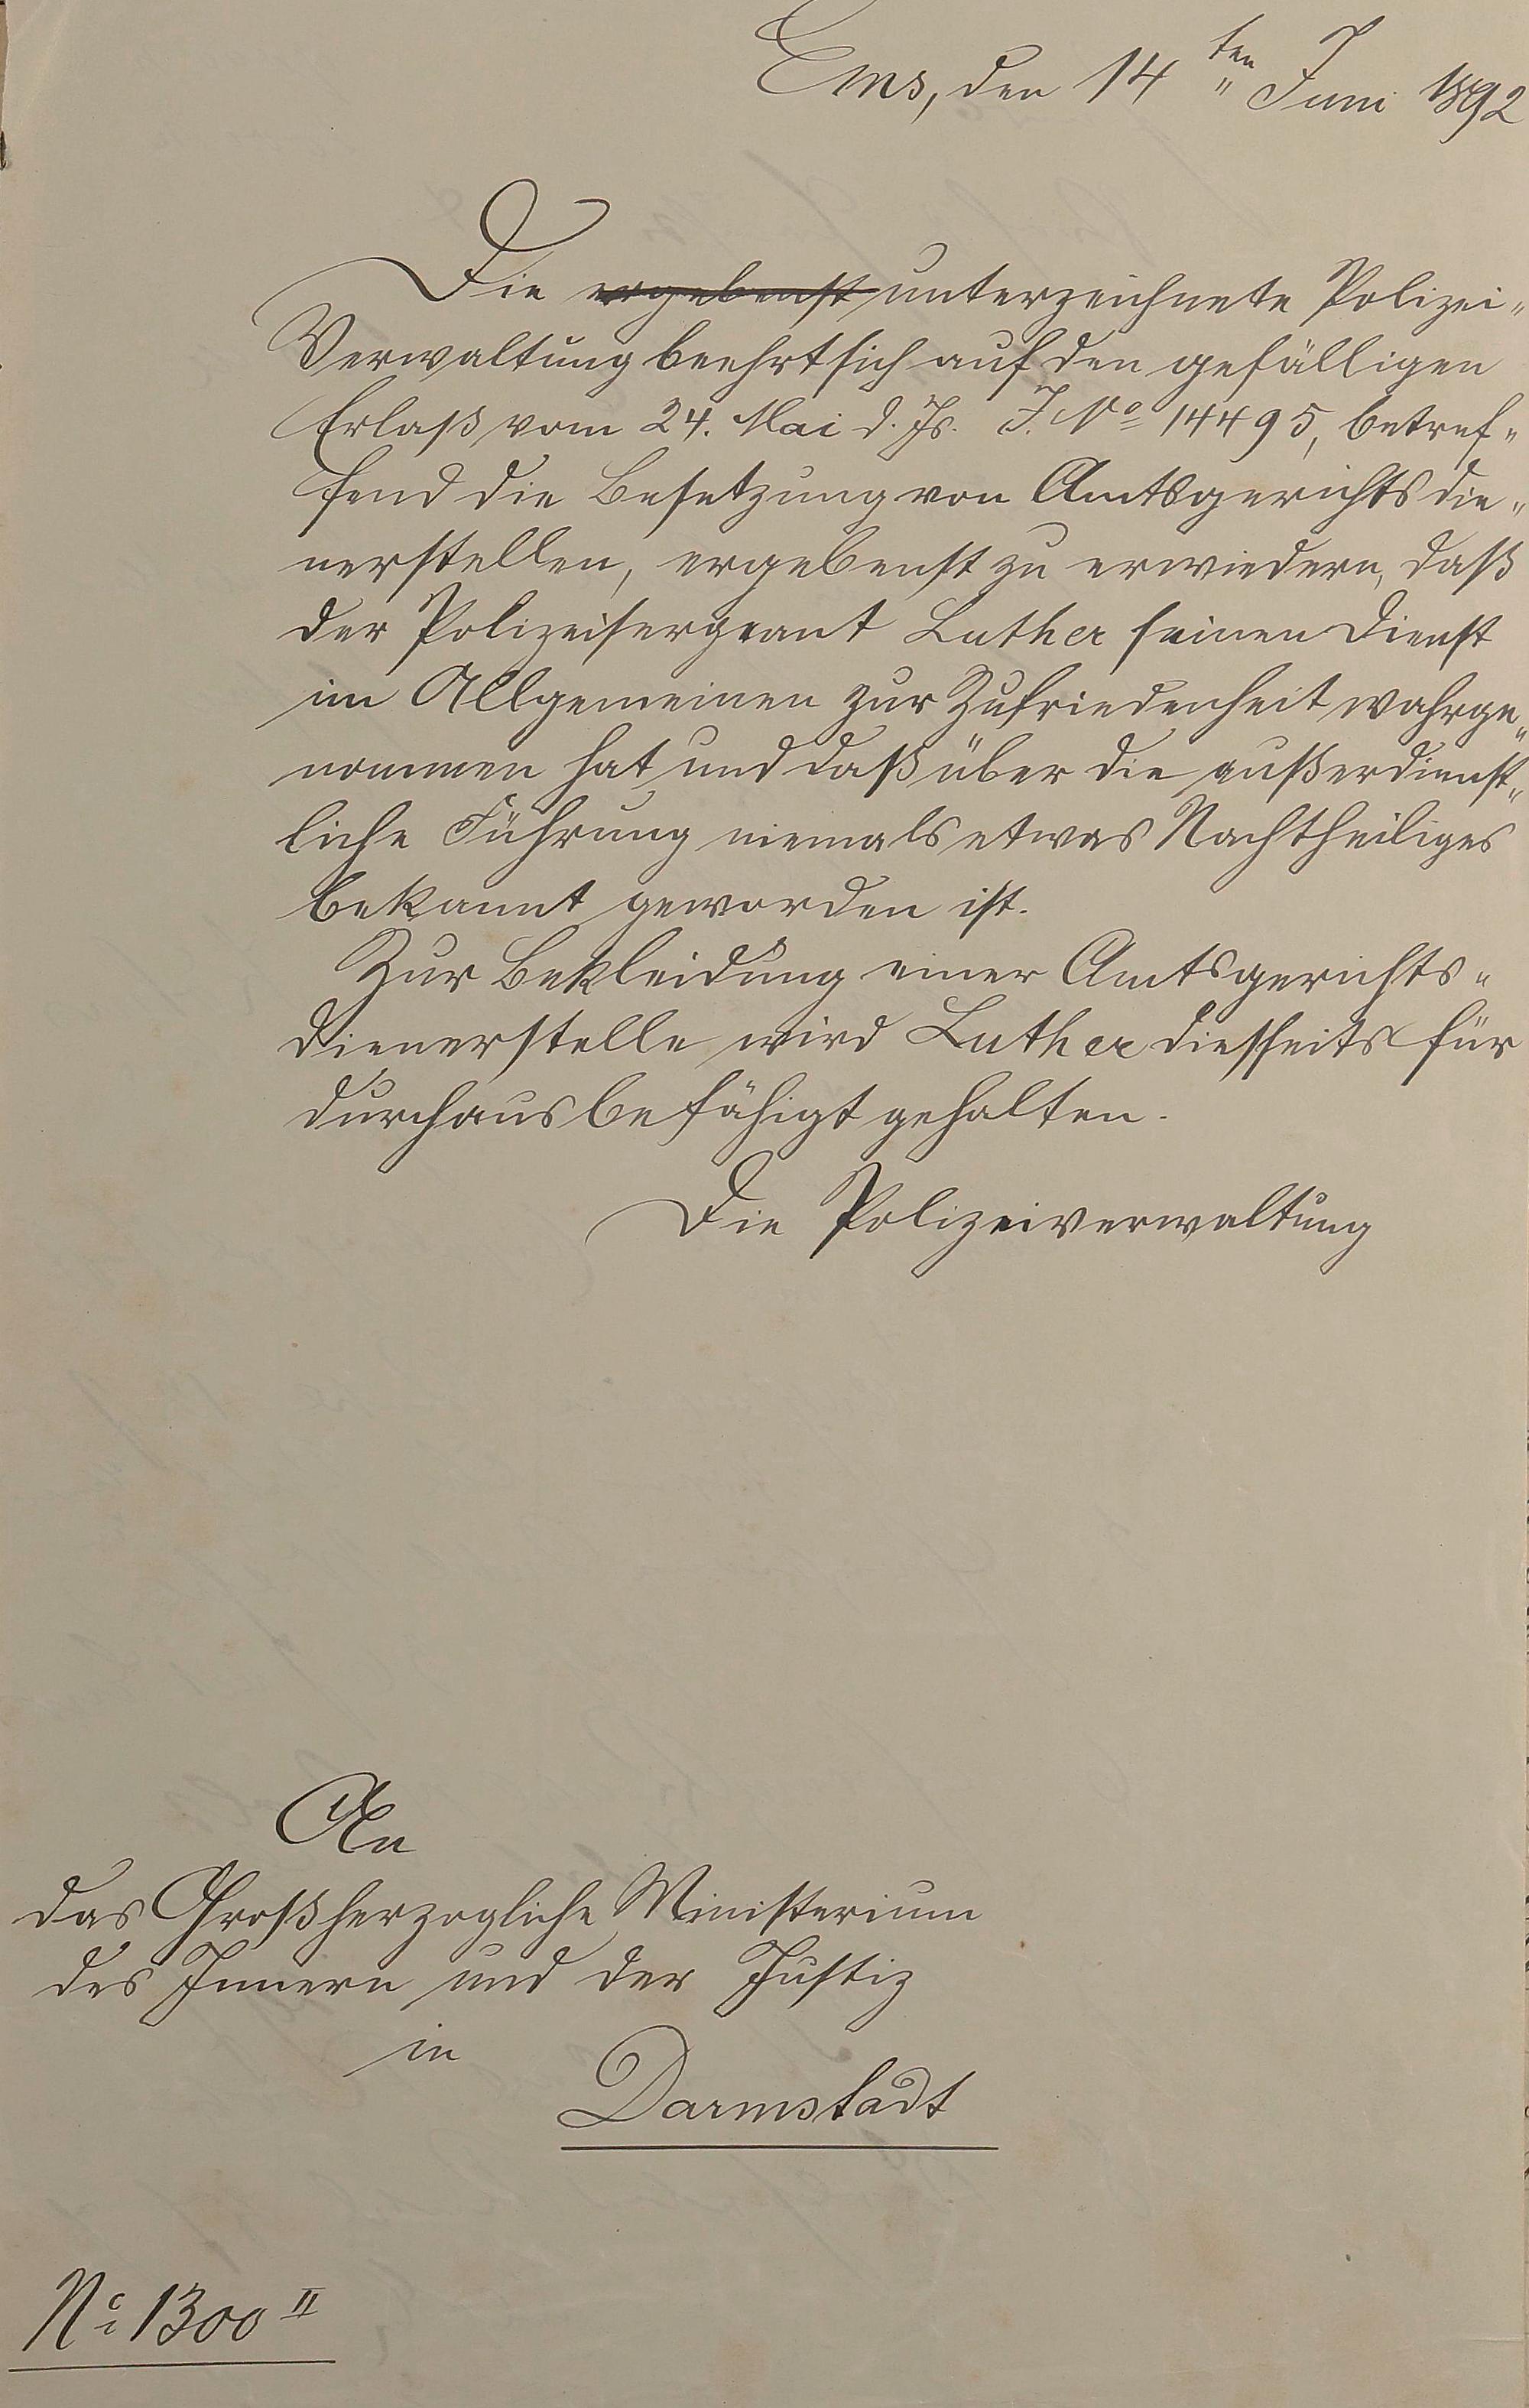 Ems, den 14ten Juni 1892
Die ergebenst unterzeichnete Polizei-
Verwaltung beehrt sich auf den gefälligen
Erlaß vom 24. Mai d. Js. J. No 14495, betref-
fend die Besetzung von Amtsgerichtsdie-
nerstellen, ergebenst zu erwiedern, daß
der Polizeisergeant Luther seinen Dienst
im Allgemeinen zur Zufriedenheit wahrge-
nommen hat, und daß über die außerdienst-
liche Führung niemals etwas Nachtheiliges
bekannt geworden ist.
Zur Bekleidung einer Amtsgerichts-
dienerstelle wird Luther diesseits für
durchaus befähigt gehalten.
Die Polizeiverwaltung
An
das Großherzogliche Ministerium
des Innern und der Justiz
in
Darmstadt
No 1300 II